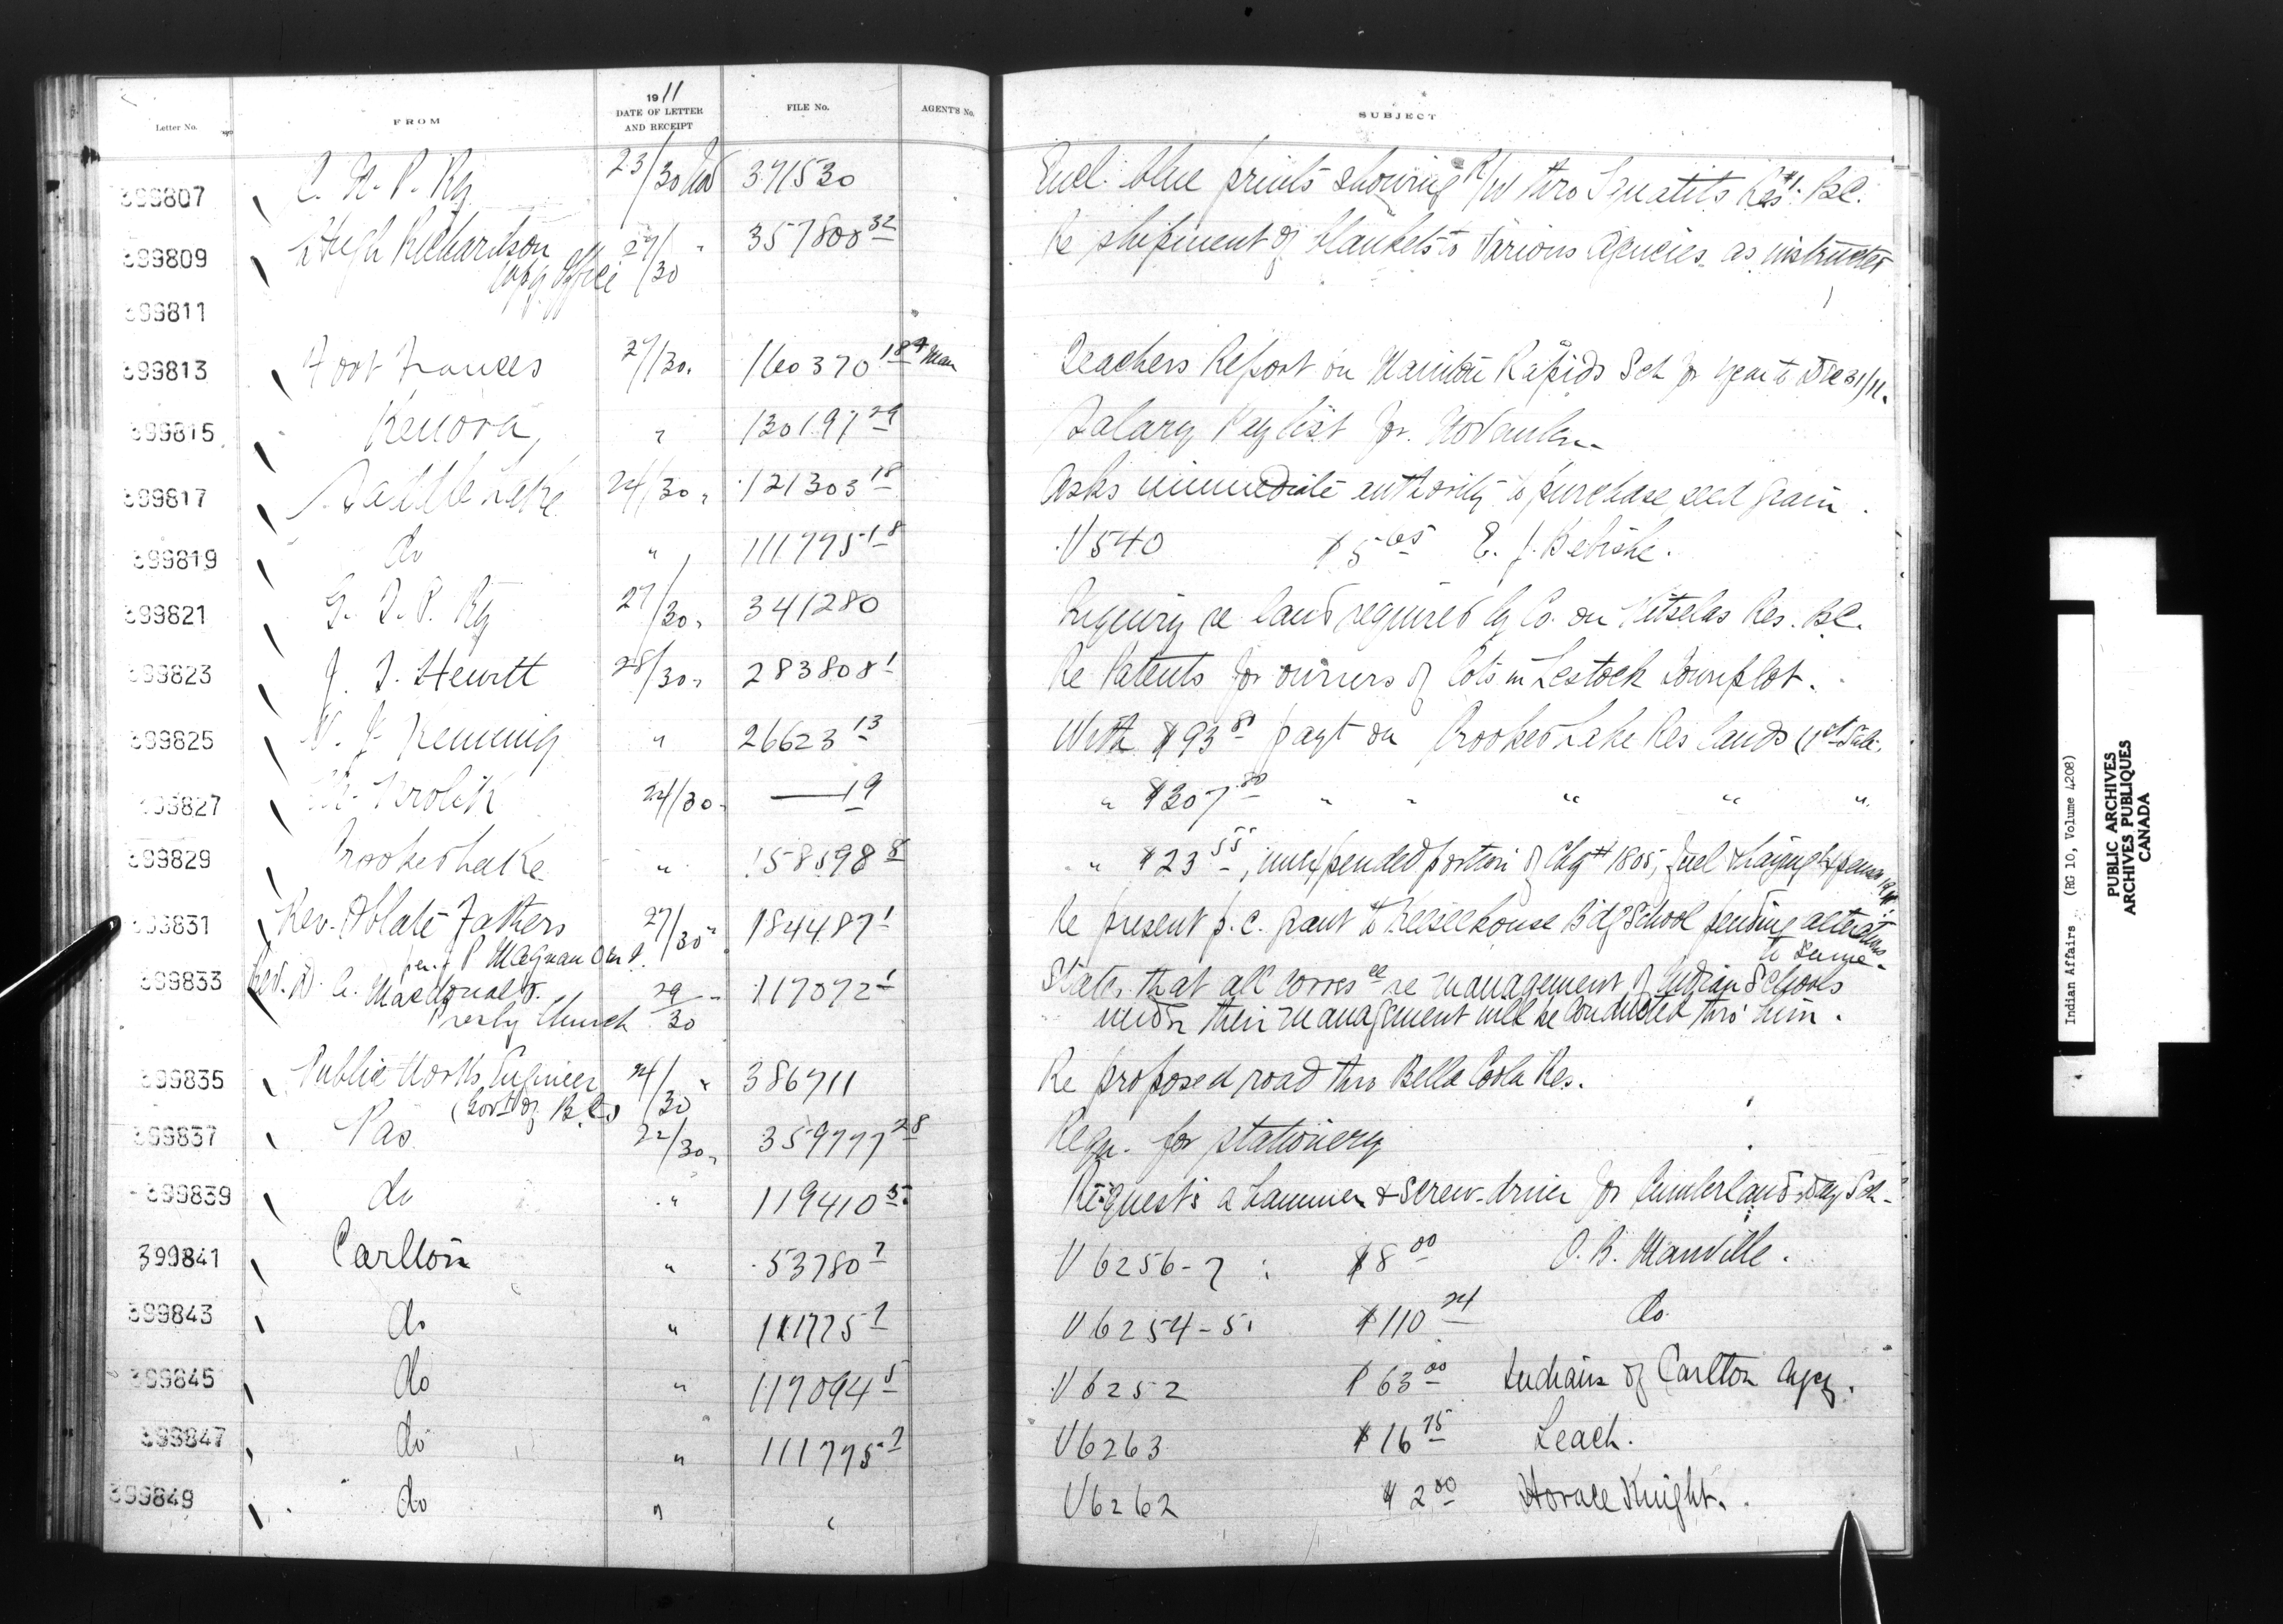 1911
Letter No. FROM DATE OF LETTER AND RECEIPT FILE No. AGENT'S No. SUBJECT
399807 C. N. P. Ry 23/30 Nov 371530 Encl. blue prints showing R/W thro Res #1. B.C.
399809 Hugh Richardson 29/30 " 357800 32 Re shipment of blankets to various Agencies as instructed
Wpg Office
399811
399813 Fort Frances 27/30. 160370 18 Man Teachers Report on Manitou Rapids Sch for year to Dec 31/11.
399815 Kenora, " 130197 29 Salary Pay list for November
399817 Saddle Lake 24/30 " 121303 18 Asks immediate authority to purchase seed grain.
399819 do " 111775 18 V540 $5 65 E. J.
399821 G. T. P. Ry 27/30 " 341280 Inquiry re land required by Co. on Kitselas Res. B.C.
399823 J. T. Hewitt 28/30 " 283808 1 Re Patents for owners of lots in Lestock Townplot.
399825 W. J. " 26623 13 With $93 81 payt on Crooked Lake Res lands (1st Sale.
399827 Krolik 24/30 " — 19 " $307 80 " " " " "
399829 Crooked Lake " 158598 8 " $23 55, unexpended portion of Chq # 1805, fuel &
399831 Rev. Oblate Fathers 27/30 " 184487 1 Re present p.c. grant to Keeseekouse Bdg School pending alterations
per J P Magnan O M I. to same.
399833 Rev. D. A. Macdonald. 29/30 " 117072 1 States that all corres ce re management of Indian Schools
Presby Church under their management will be conducted thro' him.
399835 Public Works Engineer 24/30 " 386711 Re proposed road thro Bella Coola Res.
(Govt of B.C.)
399837 Pas. 22/30 " 359777 28 Requ. for stationery
399839 do " 119410 5 Requests a hammer & screw-driver for Cumberland Day Sch-
399841 Carlton " 53780 7 V6256-7 $8 00 O. B. Manville.
399843 do " 111775 7 V6254-5. $110 24 do.
399845 do " 117094 5 V6252 $63 00 Indians of Carlton Agcy.
399847 do " 111775 7 V6263 $16 75 Leach.
399849 do " " V6262 $2 00 Horace Knight.
Indian Affairs. (RG 10, Volume 4208)
PUBLIC ARCHIVES
ARCHIVES PUBLIQUES
CANADA